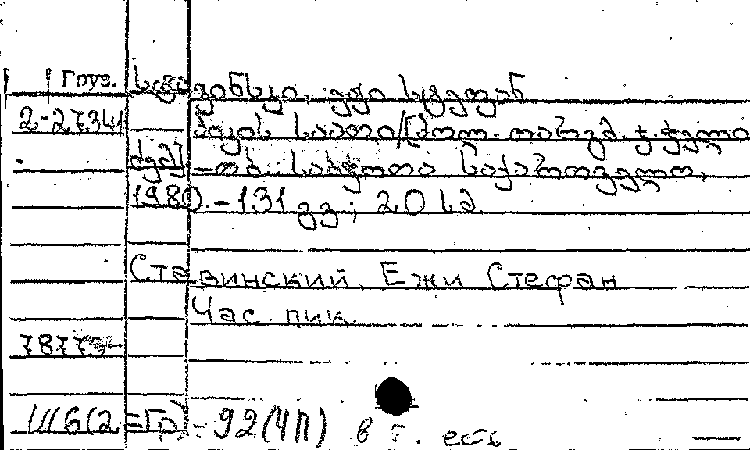 Груз. სტავინსკი, ეჟი სტეფან
2-27341 პიკის საათი/[პოლ. თარგმ.
-თბ.: საბჭოთა საქართველო,
1980.-131 გვ; 20 სმ.
Ставинский, Ежи Стефан
Час пик.
И6(2=Гр)-92(4П) в т. есть